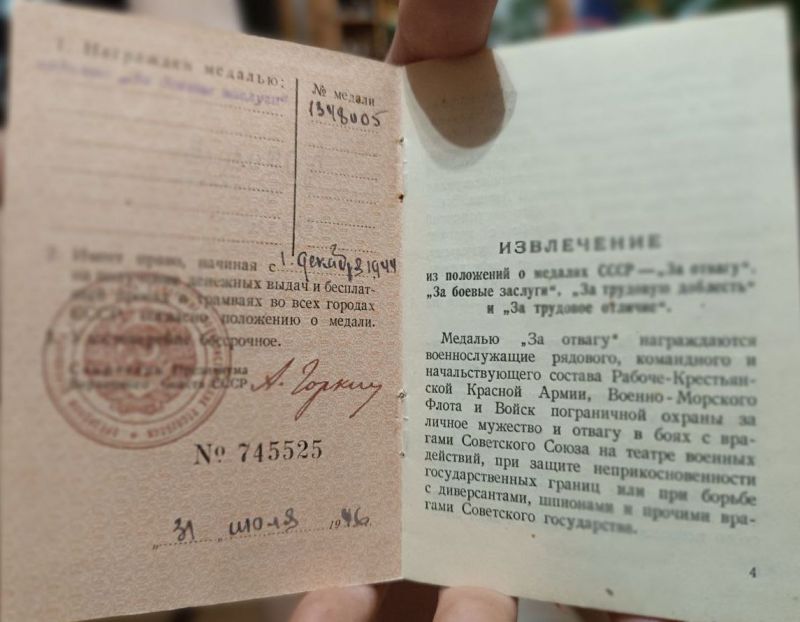 1. Награжден медалью:
„За боевые заслуги“
№ медали
1348005
2. Имеет право, начиная с 1 декабря 1944
на получение денежных выдач и бесплат-
ный проезд в трамваях во всех городах
СССР, согласно положению о медали.
3. Удостоверение бессрочное.
Секретарь Президиума
Верховного Совета СССР А. Горкин
№ 745525
„31 „ июля 1946г.
ИЗВЛЕЧЕНИЕ
из положений о медалях СССР — „За отвагу“,
„За боевые заслуги“, „За трудовую доблесть“
и „За трудовое отличие“.
Медалью „За отвагу“ награждаются
военнослужащие рядового, командного и
начальствующего состава Рабоче-Крестьян-
ской Красной Армии, Военно-Морского
Флота и Войск пограничной охраны за
личное мужество и отвагу в боях с вра-
гами Советского Союза на театре военных
действий, при защите неприкосновенности
государственных границ или при борьбе
с диверсантами, шпионами и прочими вра-
гами Советского государства.
4